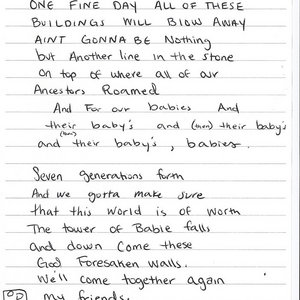 ONE FINE DAY ALL OF THESE
BUILDINGS WILL BLOW AWAY
AINT GONNA BE Nothing
but Another line in the stone
on top of where all of our
Ancestors Roamed
And For our babies And
their baby's and (then) their baby's
(then)
and their baby's, babies.
Seven generations form
And we gotta make sure
that this world is of worth
The tower of Bable falls
and down Come these
God Foresaken walls.
We'll come together again
my friends.